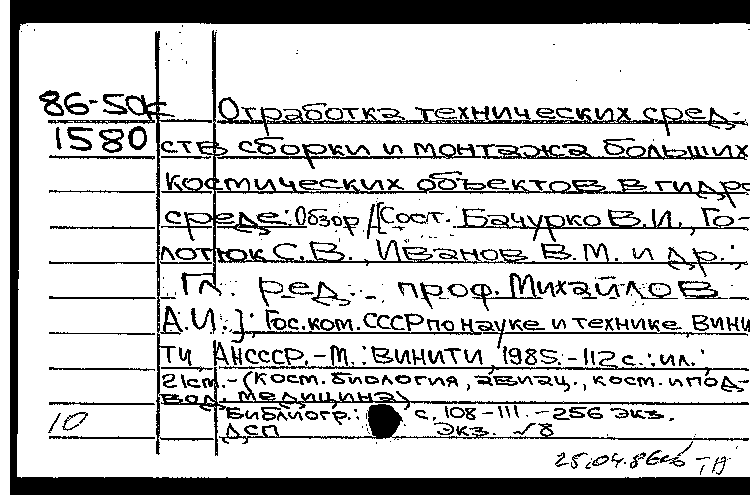 86-50к Отработка технических сред-
1580 ств сборки и монтажа больших
космических объектов в гидро
среде: Обзор /[Сост. Бачурко В.И., Го-
лотюк С.В., Иванов В.М. и др.;
Гл. ред. проф. Михайлов
А.И.]; Гос.ком. СССР по науке и технике, ВИНИ
ТИ, АН СССР. - М.: ВИНИТИ, 1985. - 112 с.: ил.;
21 см. - (Косм. биология, авиац., косм. и под-
вод. медицина)
Библиогр.: с. 108-111. - 256 экз.
ДСП экз. √8
10
25.04.86